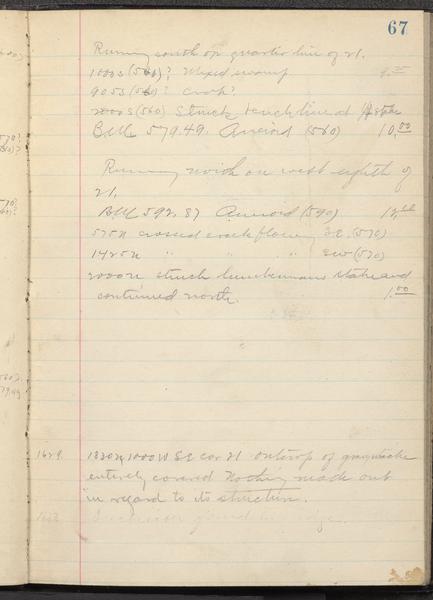 67
Running south on quarter line of 21.
1000 S (560)? Mixed swamp
905 S (560)? Creek?
2000 S (560) Struck bench line at
B.M. 579.49. Aneroid (560) 10.00
Running north on west eighth of
21.
B.M. 592.87 Aneroid (590)
575 N crossed creek flowing S.E. (570)
1425 N " " " SW (570)
2000 N struck lumbermans stake and
continued north. 1.00
1629. 1830 N, 1000 W SE cor 21 outcrop of graywacke
entirely covered Nothing made out
in regard to its structure.